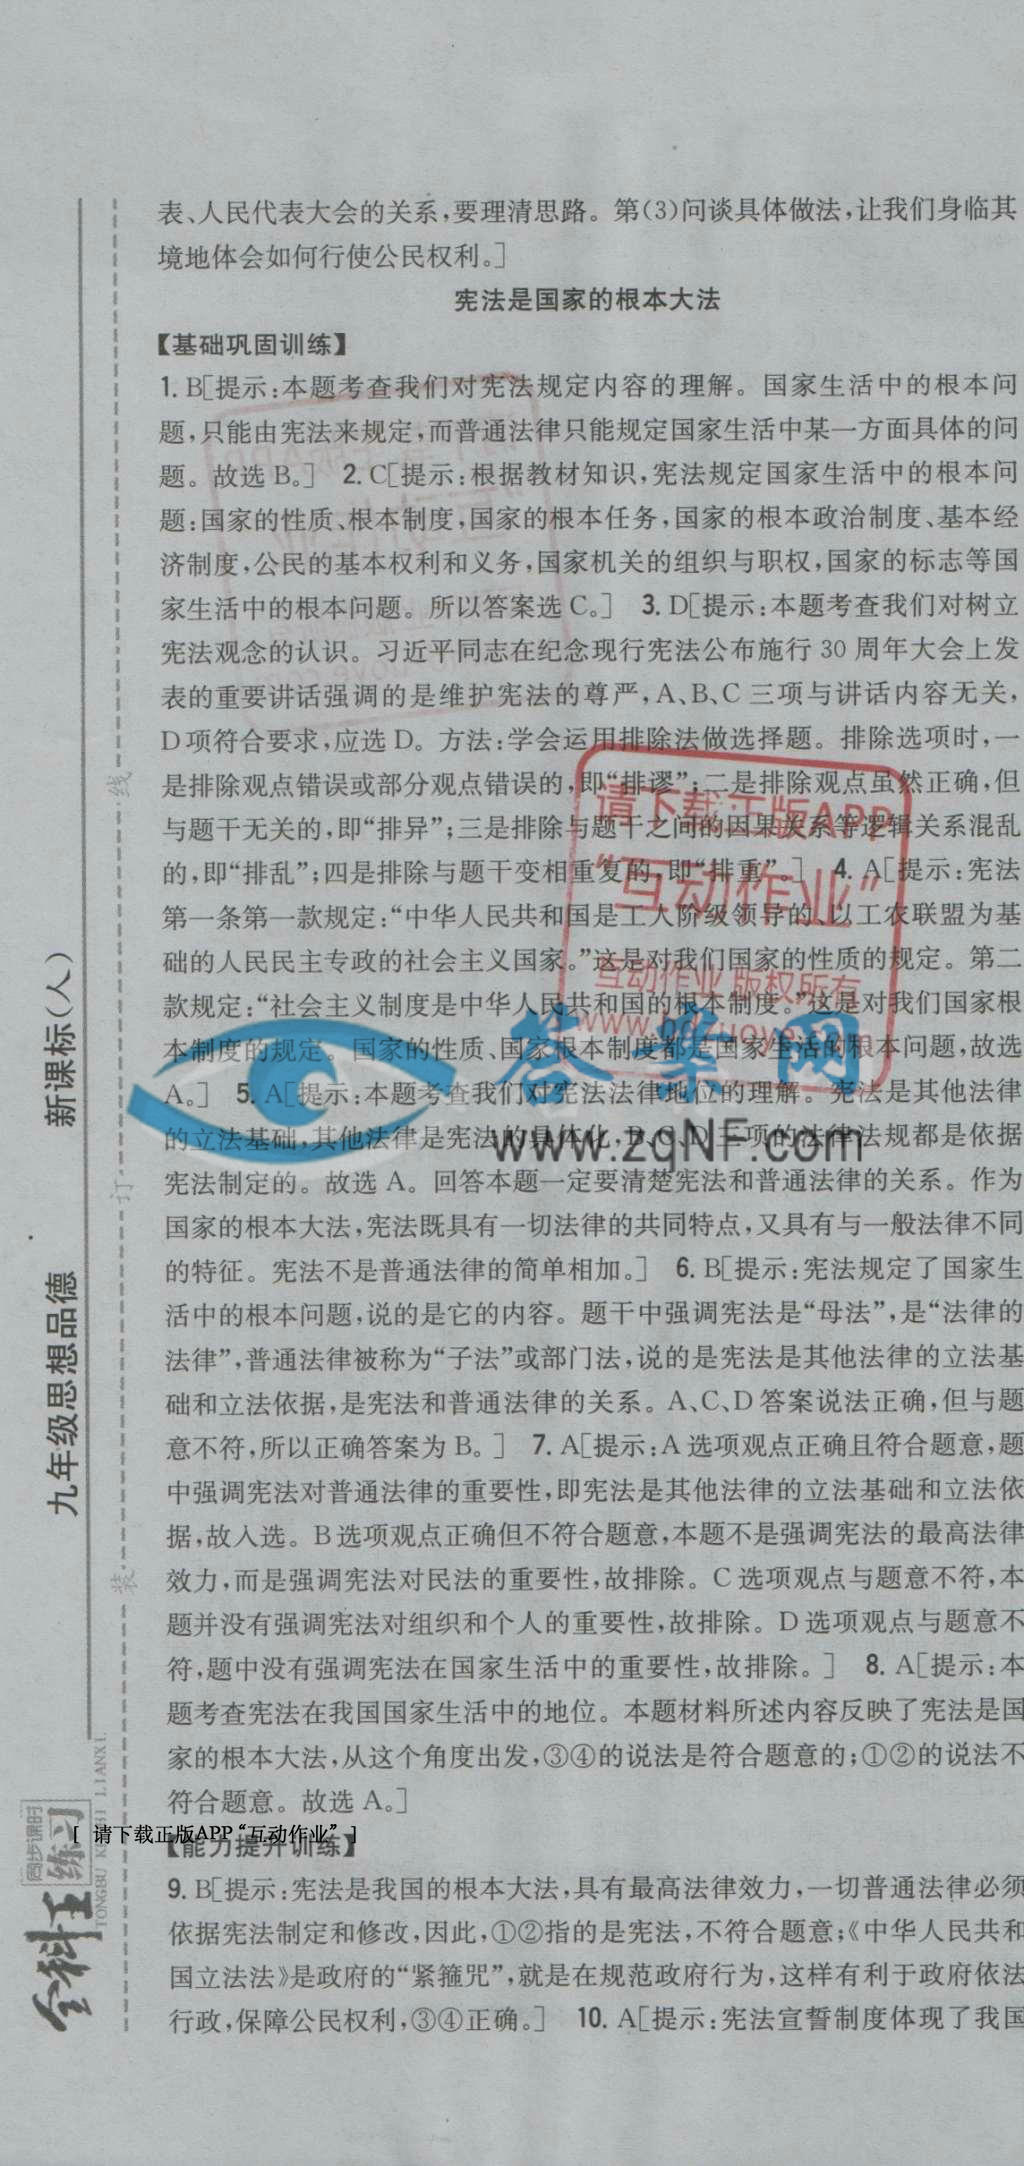 表、人民代表大会的关系,要理清思路。第(3)问谈具体做法,让我们身临其
境地体会如何行使公民权利。]
宪法是国家的根本大法
【基础巩固训练】
1. B[提示:本题考查我们对宪法规定内容的理解。国家生活中的根本问
题,只能由宪法来规定,而普通法律只能规定国家生活中某一方面具体的问
题。故选 B。] 2. C[提示:根据教材知识,宪法规定国家生活中的根本问
题:国家的性质、根本制度,国家的根本任务,国家的根本政治制度、基本经
济制度,公民的基本权利和义务,国家机关的组织与职权,国家的标志等国
家生活中的根本问题。所以答案选 C。] 3. D[提示:本题考查我们对树立
宪法观念的认识。习近平同志在纪念现行宪法公布施行 30 周年大会上发
表的重要讲话强调的是维护宪法的尊严,A、B、C 三项与讲话内容无关,
D 项符合要求,应选 D。方法:学会运用排除法做选择题。排除选项时,一
是排除观点错误或部分观点错误的,即“排谬”;二是排除观点虽然正确,但
与题干无关的,即“排异”;三是排除与题干之间的因果关系等逻辑关系混乱
的,即“排乱”;四是排除与题干变相重复的,即“排重”。] 4. A[提示:宪法
第一条第一款规定:“中华人民共和国是工人阶级领导的、以工农联盟为基
础的人民民主专政的社会主义国家。”这是对我们国家的性质的规定。第二
款规定:“社会主义制度是中华人民共和国的根本制度。”这是对我们国家根
本制度的规定。国家的性质、国家根本制度都是国家生活的根本问题,故选
A。] 5. A[提示:本题考查我们对宪法法律地位的理解。宪法是其他法律
的立法基础,其他法律是宪法的具体化,B、C、D 三项的法律法规都是依据
宪法制定的。故选 A。回答本题一定要清楚宪法和普通法律的关系。作为
国家的根本大法,宪法既具有一切法律的共同特点,又具有与一般法律不同
的特征。宪法不是普通法律的简单相加。] 6. B[提示:宪法规定了国家生
活中的根本问题,说的是它的内容。题干中强调宪法是“母法”,是“法律的
法律”,普通法律被称为“子法”或部门法,说的是宪法是其他法律的立法基
础和立法依据,是宪法和普通法律的关系。A、C、D 答案说法正确,但与题
意不符,所以正确答案为 B。] 7. A[提示:A 选项观点正确且符合题意,题
中强调宪法对普通法律的重要性,即宪法是其他法律的立法基础和立法依
据,故入选。B 选项观点正确但不符合题意,本题不是强调宪法的最高法律
效力,而是强调宪法对民法的重要性,故排除。C 选项观点与题意不符,本
题并没有强调宪法对组织和个人的重要性,故排除。D 选项观点与题意不
符,题中没有强调宪法在国家生活中的重要性,故排除。] 8. A[提示:本
题考查宪法在我国国家生活中的地位。本题材料所述内容反映了宪法是国
家的根本大法,从这个角度出发,③④的说法是符合题意的;①②的说法不
符合题意。故选 A。]
【能力提升训练】
9. B[提示:宪法是我国的根本大法,具有最高法律效力,一切普通法律必须
依据宪法制定和修改,因此,①②指的是宪法,不符合题意;《中华人民共和
国立法法》是政府的“紧箍咒”,就是在规范政府行为,这样有利于政府依法
行政,保障公民权利,③④正确。] 10. A[提示:宪法宣誓制度体现了我国
[ 请下载正版APP“互动作业” ]
请下载正版APP
“互动作业”
互动作业 版权所有
答案网
www.zqNF.com
线
订
装
新课标(人)
九年级思想品德
同步课时
练习
全科王
TONGBU KESHI LIANXI